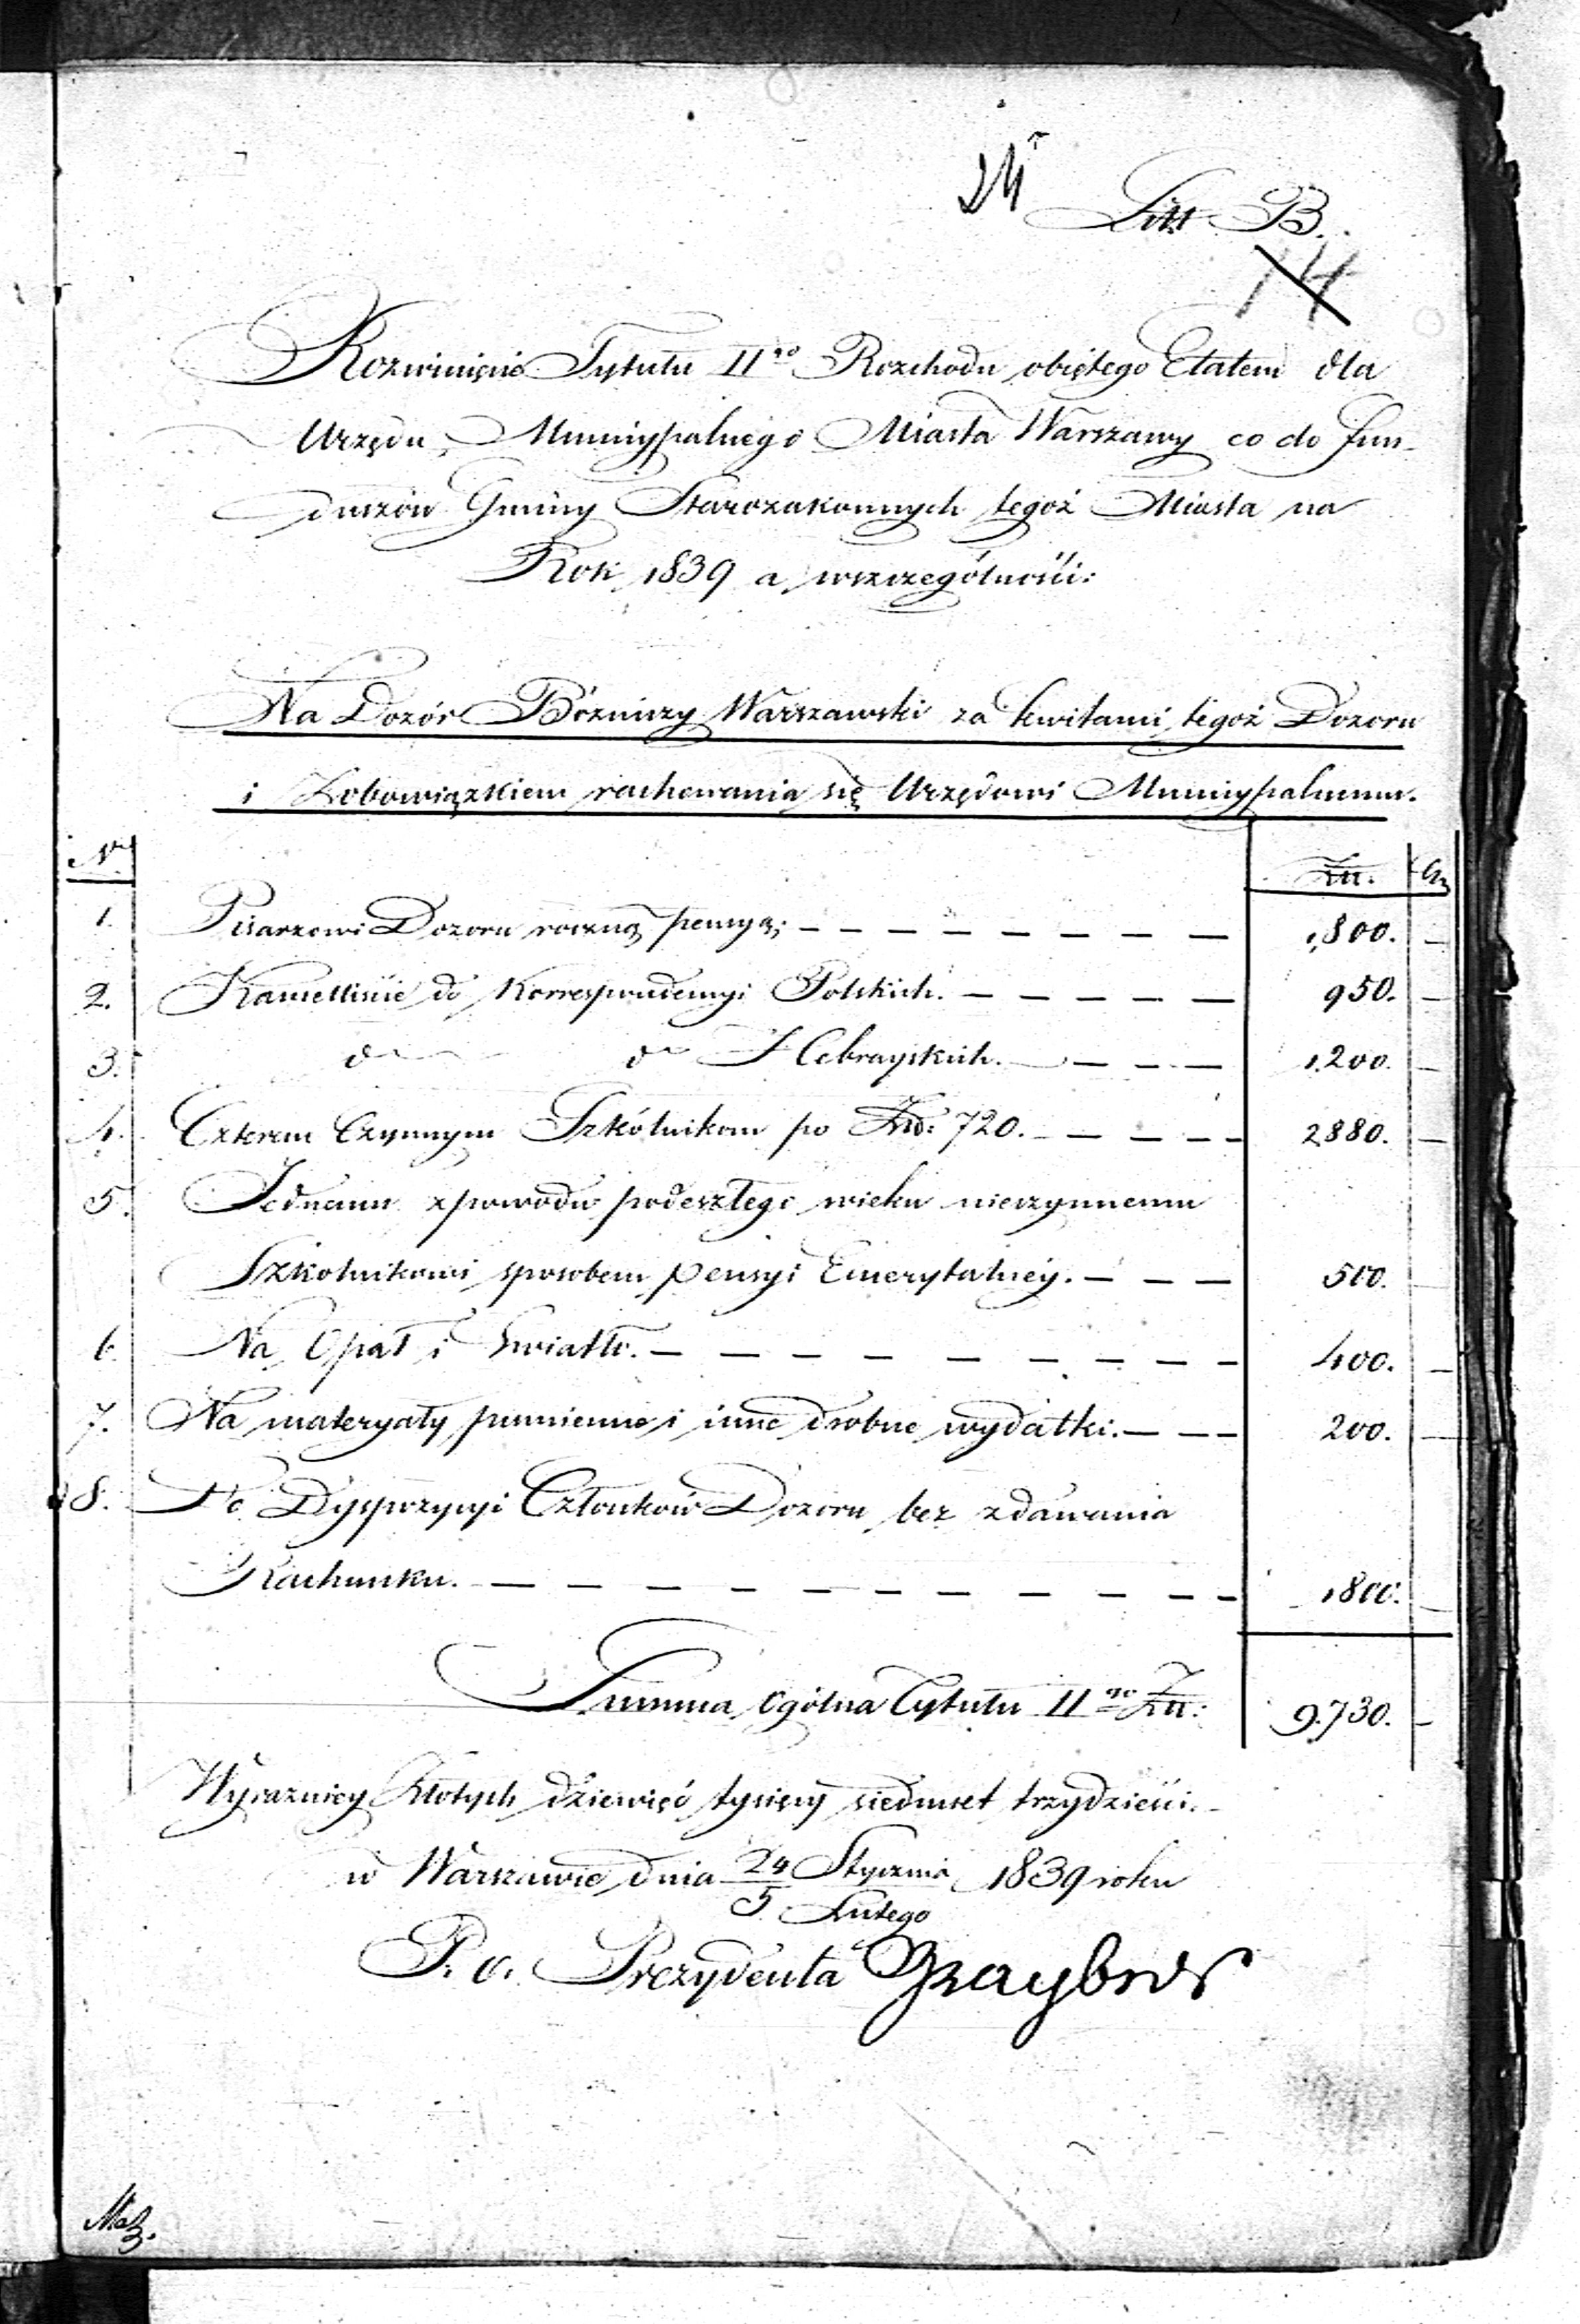 24
Litt B.
14
Rozwinięcie Tytułu IIgo Rozchodu obiętego Etatem dla
Urzędu Municypalnego Miasta Warszawy co do fun-
duszów Gminy Starozakonnych tegoż Miasta na
Rok 1839 a wszczególności:
Na Dozór Bóżniczy Warszawski za kwitami tegoż Dozoru
i Zobowiązkiem rachowania się Urzędowi Municypalnemu.
Nr Złt. Gr
1. Pisarzowi Dozoru roczną pensyą; — — — — — — — — 1,800. —
2. Kancellisie do Korrespondencyi Polskich. — — — — — 950. —
3. do do Hebrayskich. — — — — 1.200. —
4. Czterem Czynnym Szkólnikom po Złt: 720. — — — — — 2880. —
5. Jednemu z powodu podeszłego wieku nieczynnemu
Szkolnikowi sposobem pensyi Emerytalnéy. — — — 500. —
6. Na Opał i Swiatło. — — — — — — — — — 400. —
7. Na materyały pismienne i inne drobne wydatki. — — — 200. —
8. Do Dyspozycyi Członków Dozoru bez zdawania
Rachunku. — — — — — — — — — — 1800. —
Summa Ogólna Tytułu IIgo Złt: 9.730. —
Wyraźniey Złotych dziewięć tysięcy siedmset trzydzieści. —
w Warszawie dnia 24 Stycznia 1839 roku
5 Lutego
P. o. Prezydenta Graybner